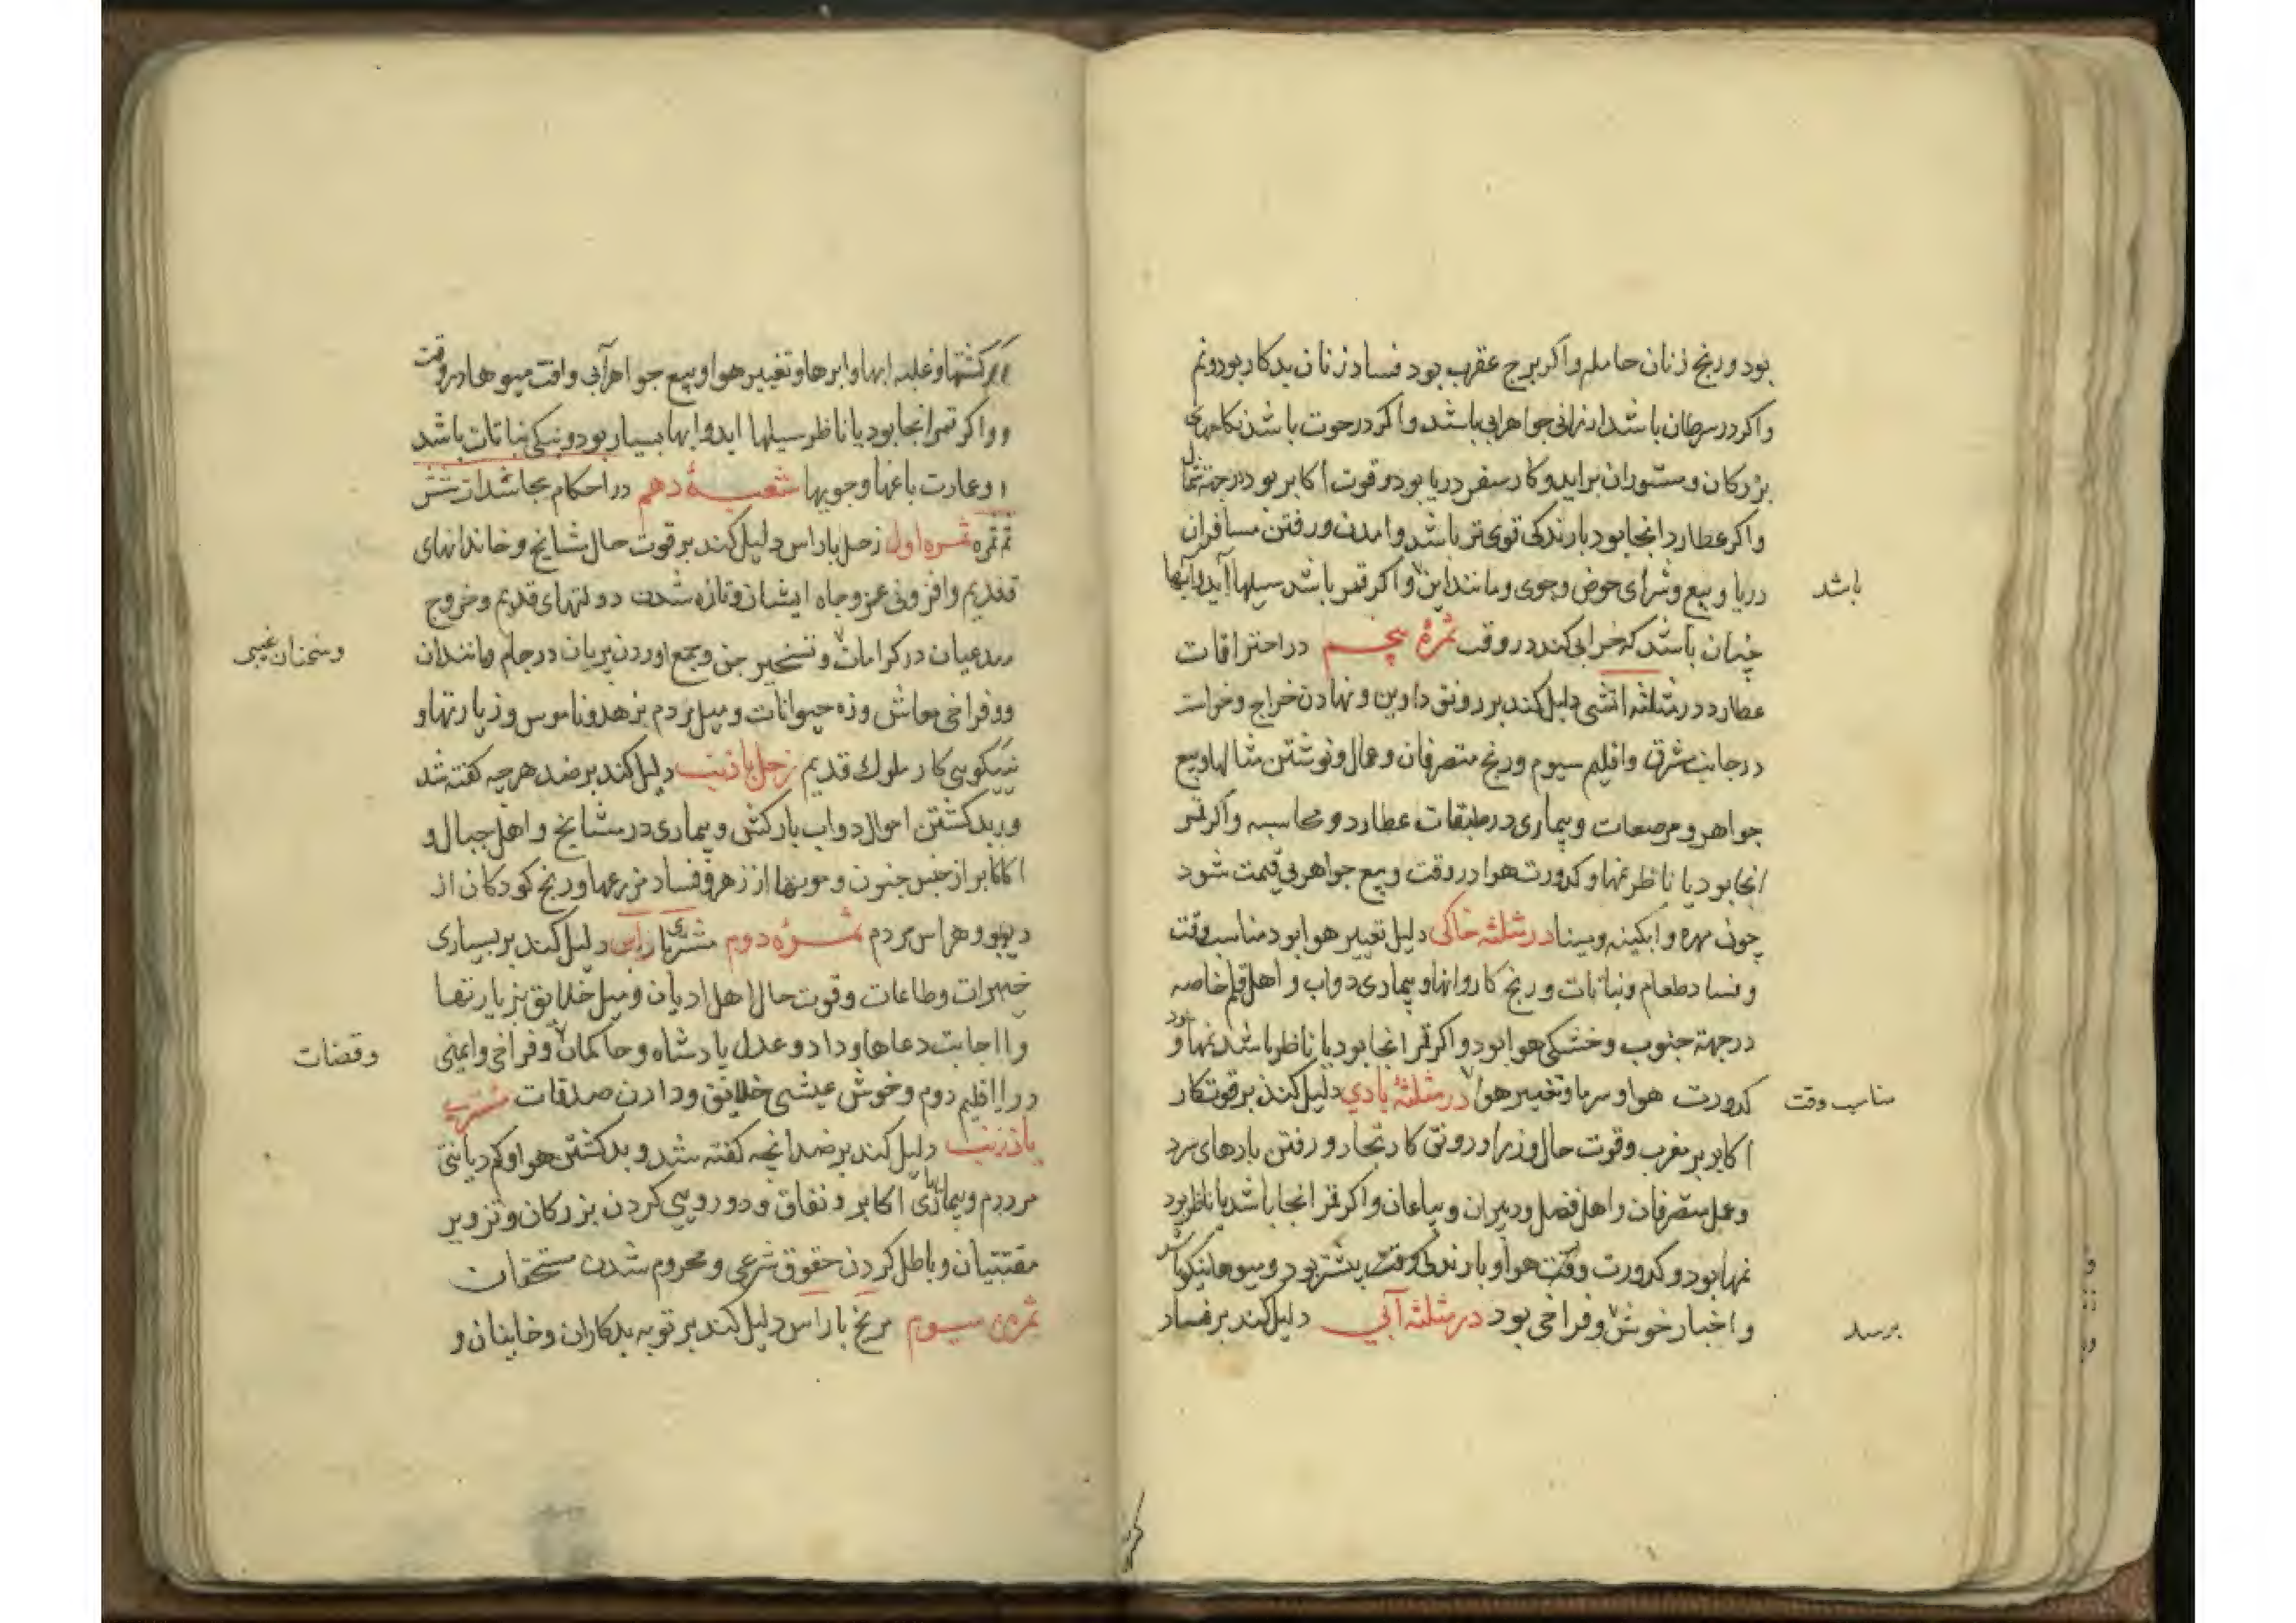 بود و رنج زنان حامله و اکر برج عقرب بود فساد زنان بدکار بود و نم
واکر در سرطان باشد ارزانی جواهر ابی باشد و اکر در حوت باشد نکاحهای
بزرکان و مستوران براید و کار سفر دریا بود و قوت اکابر بود در جهة شمال
واکر عطارد انجا بود بارندکی قوی تر باشد و امدن و رفتن مسافران
دریا و بیع و شرای حوض و جوی و مانند این و اکر قمر باشد سیلها آید و آبها
باشد
چنان باشد که خرابی کند در وقت ثمرهٔ پنجم در احتراقات
عطارد در مثلثه اتشی دلیل کند بر رونق داوین و نهادن خراج و خراست
در جانب مشرق و اقلیم سیوم و رنج متصرفان و عمال و نوشتن مثالها و بیع
جواهر و مرصعات و بیماری در طبقات عطارد و محاسبه و اکر قمر
انجا بود یا ناظر نمها و کدورت هوا در وقت و بیع جواهر بی قیمت شود
چون مهره و ابکینه و مینا در مثلثه خاکی دلیل تغییر هوا بود مناسب وقت
و فساد طعام و نباتات و رنج کاروانها و بیماری دواب و اهل قلم خاصه
در جهة جنوب و خشکی هوا بود و اکر قمر انجا بود یا ناظر باشد نمها بود و
کدورت هوا و سرما و تغییر هوا در مثلثهٔ بادی دلیل کند بر قوت کار
مناسب وقت
اکابر بر مغرب و قوت حال وزرا و رونق کار تجار و رفتن بادهای سرد
و عمل متصرفان و اهل فضل و دبیران و بیاعان و اکر قمر انجا باشد یا ناظر بود
نمها بود و کدورت وقت هوا و بارندکی وقت بیشتر بود و میوها نیکو باشد
و اخبار خوش و فراخی بود در مثلثه آبی دلیل کند بر فساد
برسد
کشتها و غلبه ابها و ابرها و تغییر هوا و بیع جواهر آبی و افت میوها در وقت
و واکر قمر انجا بود یا ناظر سیلها اید و ابها بسیار بود و نیکی نباتات باشد
و عمارت باغها و جویها شعبهٔ دهم در احکام مجاسدات شش
ثمره ثمره اول زحل با راس دلیل کند بر قوت حال مشایخ و خاندانهای
قدیم و افزونی عز و جاه ایشان و تازه شدن دولتهای قدیم و خروج
مدعیان در کرامات و تسخیر جن و جمع اوردن پریان در جام و مانند ان
و سخنان غیبی
و وفراخی معاش وزه حیوانات و میل مردم بزهد و ناموس و زیارتها و
نیکویی کار ملوک قدیم زحل با ذنب دلیل کند بر ضد هرچه کفته شد
و بد کشتن احوال دواب بارکش و بیماری در مشایخ و اهل جبال و
اکابر از جنس جنون و موتها از زهر و فساد مزرعها و رنج کودکان از
دیو و هراس مردم ثمرهٔ دوم مشتری با راس دلیل کند بر بسیاری
خیرات و طاعات و قوت حال اهل ادیان و میل خلایق بزیارتها
و اجابت دعاها و داد و عدل پادشاه و حاکمان و فراخی و ایمنی
و قضات
در اقلیم دوم و خوش عیشی خلایق و دادن صدقات مشتری
با ذنب دلیل کند بر ضد انچه کفته شد و بد کشتن هوا و کم دیانتی
مردم و بیماری اکابر و نفاق و دورویی کردن بزرکان و تزویر
مفتیان و باطل کردن حقوق شرعی و محروم شدن مستحقان
ثمره سیوم مریخ با راس دلیل کند بر توبه بدکاران و خاینان و